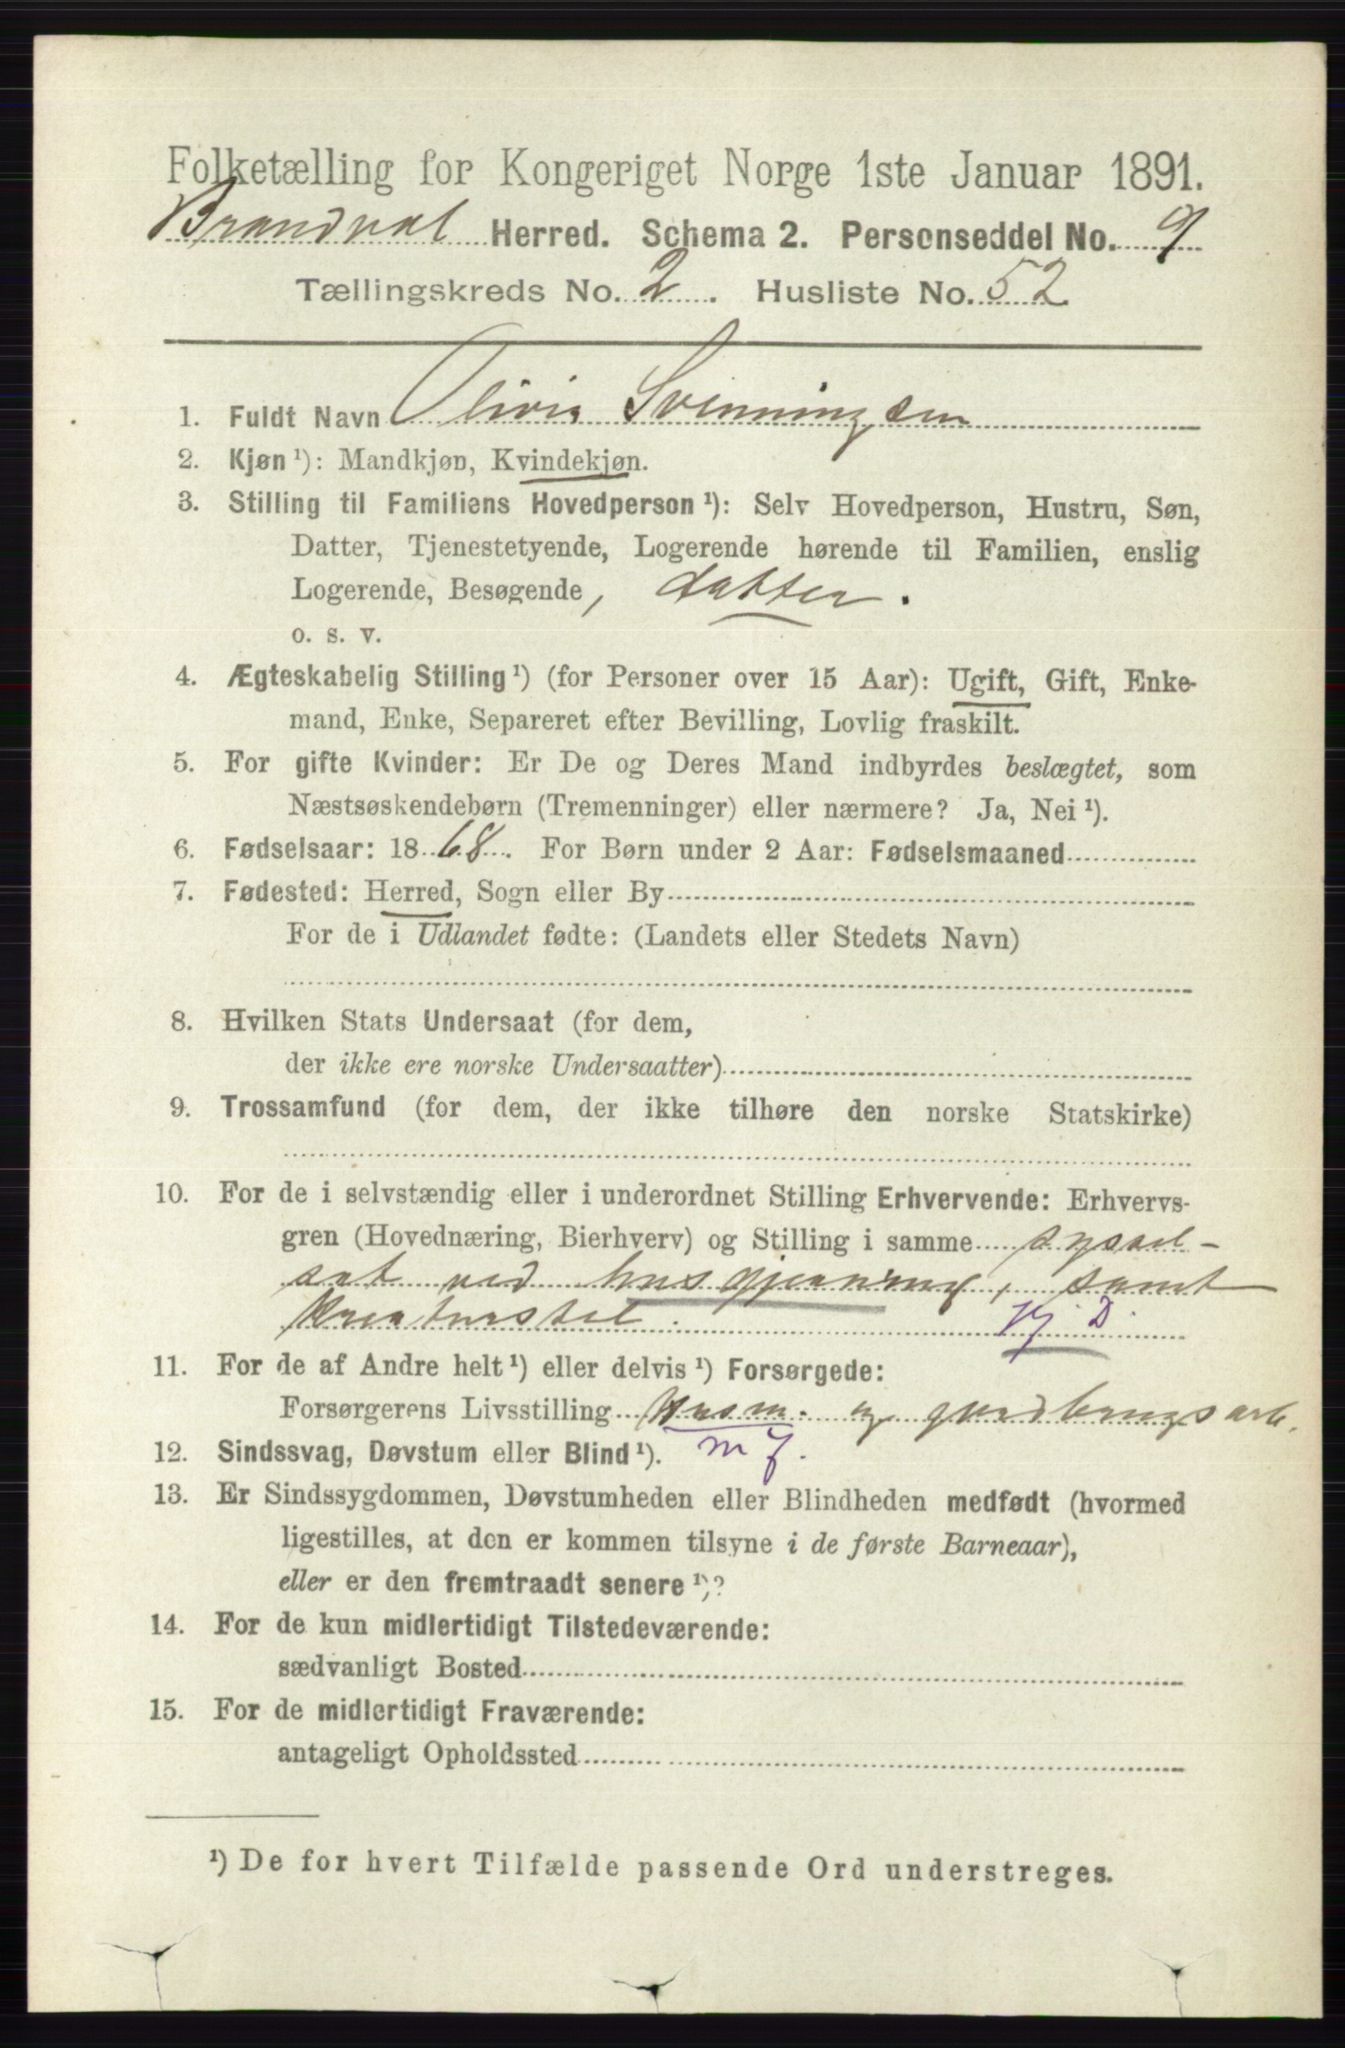 Folketælling for Kongeriget Norge 1ste Januar 1891.
Brandval Herred. Schema 2. Personseddel No. 9
Tællingskreds No. 2. Husliste No. 52
1. Fuldt Navn Olivia Svenningsen
2. Kjøn ¹): Mandkjøn, Kvindekjøn.
3. Stilling til Familiens Hovedperson ¹): Selv Hovedperson, Hustru, Søn,
Datter, Tjenestetyende, Logerende hørende til Familien, enslig
Logerende, Besøgende, datter.
o. s. v.
4. Ægteskabelig Stilling ¹) (for Personer over 15 Aar): Ugift, Gift, Enke-
mand, Enke, Separeret efter Bevilling, Lovlig fraskilt.
5. For gifte Kvinder: Er De og Deres Mand indbyrdes beslægtet, som
Næstsøskendebørn (Tremenninger) eller nærmere? Ja, Nei ¹).
6. Fødselsaar: 1868. For Børn under 2 Aar: Fødselsmaaned
7. Fødested: Herred, Sogn eller By
For de i Udlandet fødte: (Landets eller Stedets Navn)
8. Hvilken Stats Undersaat (for dem,
der ikke ere norske Undersaatter)
9. Trossamfund (for dem, der ikke tilhøre den norske Statskirke)
10. For de i selvstændig eller i underordnet Stilling Erhvervende: Erhvervs-
gren (Hovednæring, Bierhverv) og Stilling i samme syssel-
sat ved husgjerning, samt
kreaturstel. Hj. D.
11. For de af Andre helt ¹) eller delvis ¹) Forsørgede:
Forsørgerens Livsstilling Husm. og gardbrugsarb.
12. Sindssvag, Døvstum eller Blind ¹). m f.
13. Er Sindssygdommen, Døvstumheden eller Blindheden medfødt (hvormed
ligestilles, at den er kommen tilsyne i de første Barneaar),
eller er den fremtraadt senere ¹)?
14. For de kun midlertidigt Tilstedeværende:
sædvanligt Bosted
15. For de midlertidigt Fraværende:
antageligt Opholdssted
¹) De for hvert Tilfælde passende Ord understreges.